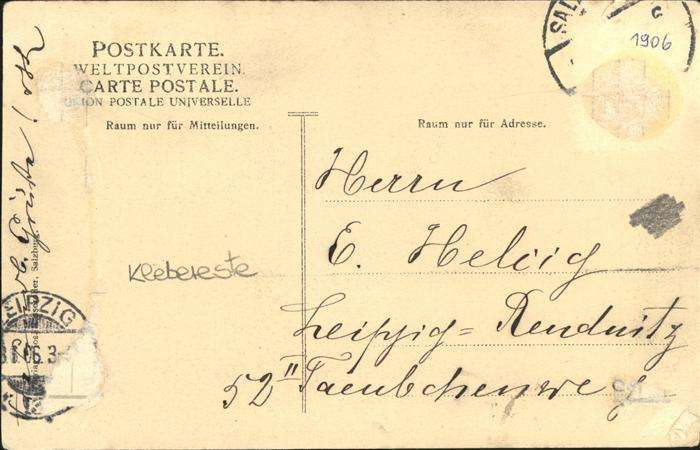 POSTKARTE.
WELTPOSTVEREIN.
CARTE POSTALE.
UNION POSTALE UNIVERSELLE
Raum nur für Mitteilungen.
Raum nur für Adresse.
SAL
c
1906
Herrn
E. Helvig
Leipzig= Reudnitz
52 II Taeubchenweg
Klebereste
Grüße!
LEIPZIG
Salzburg